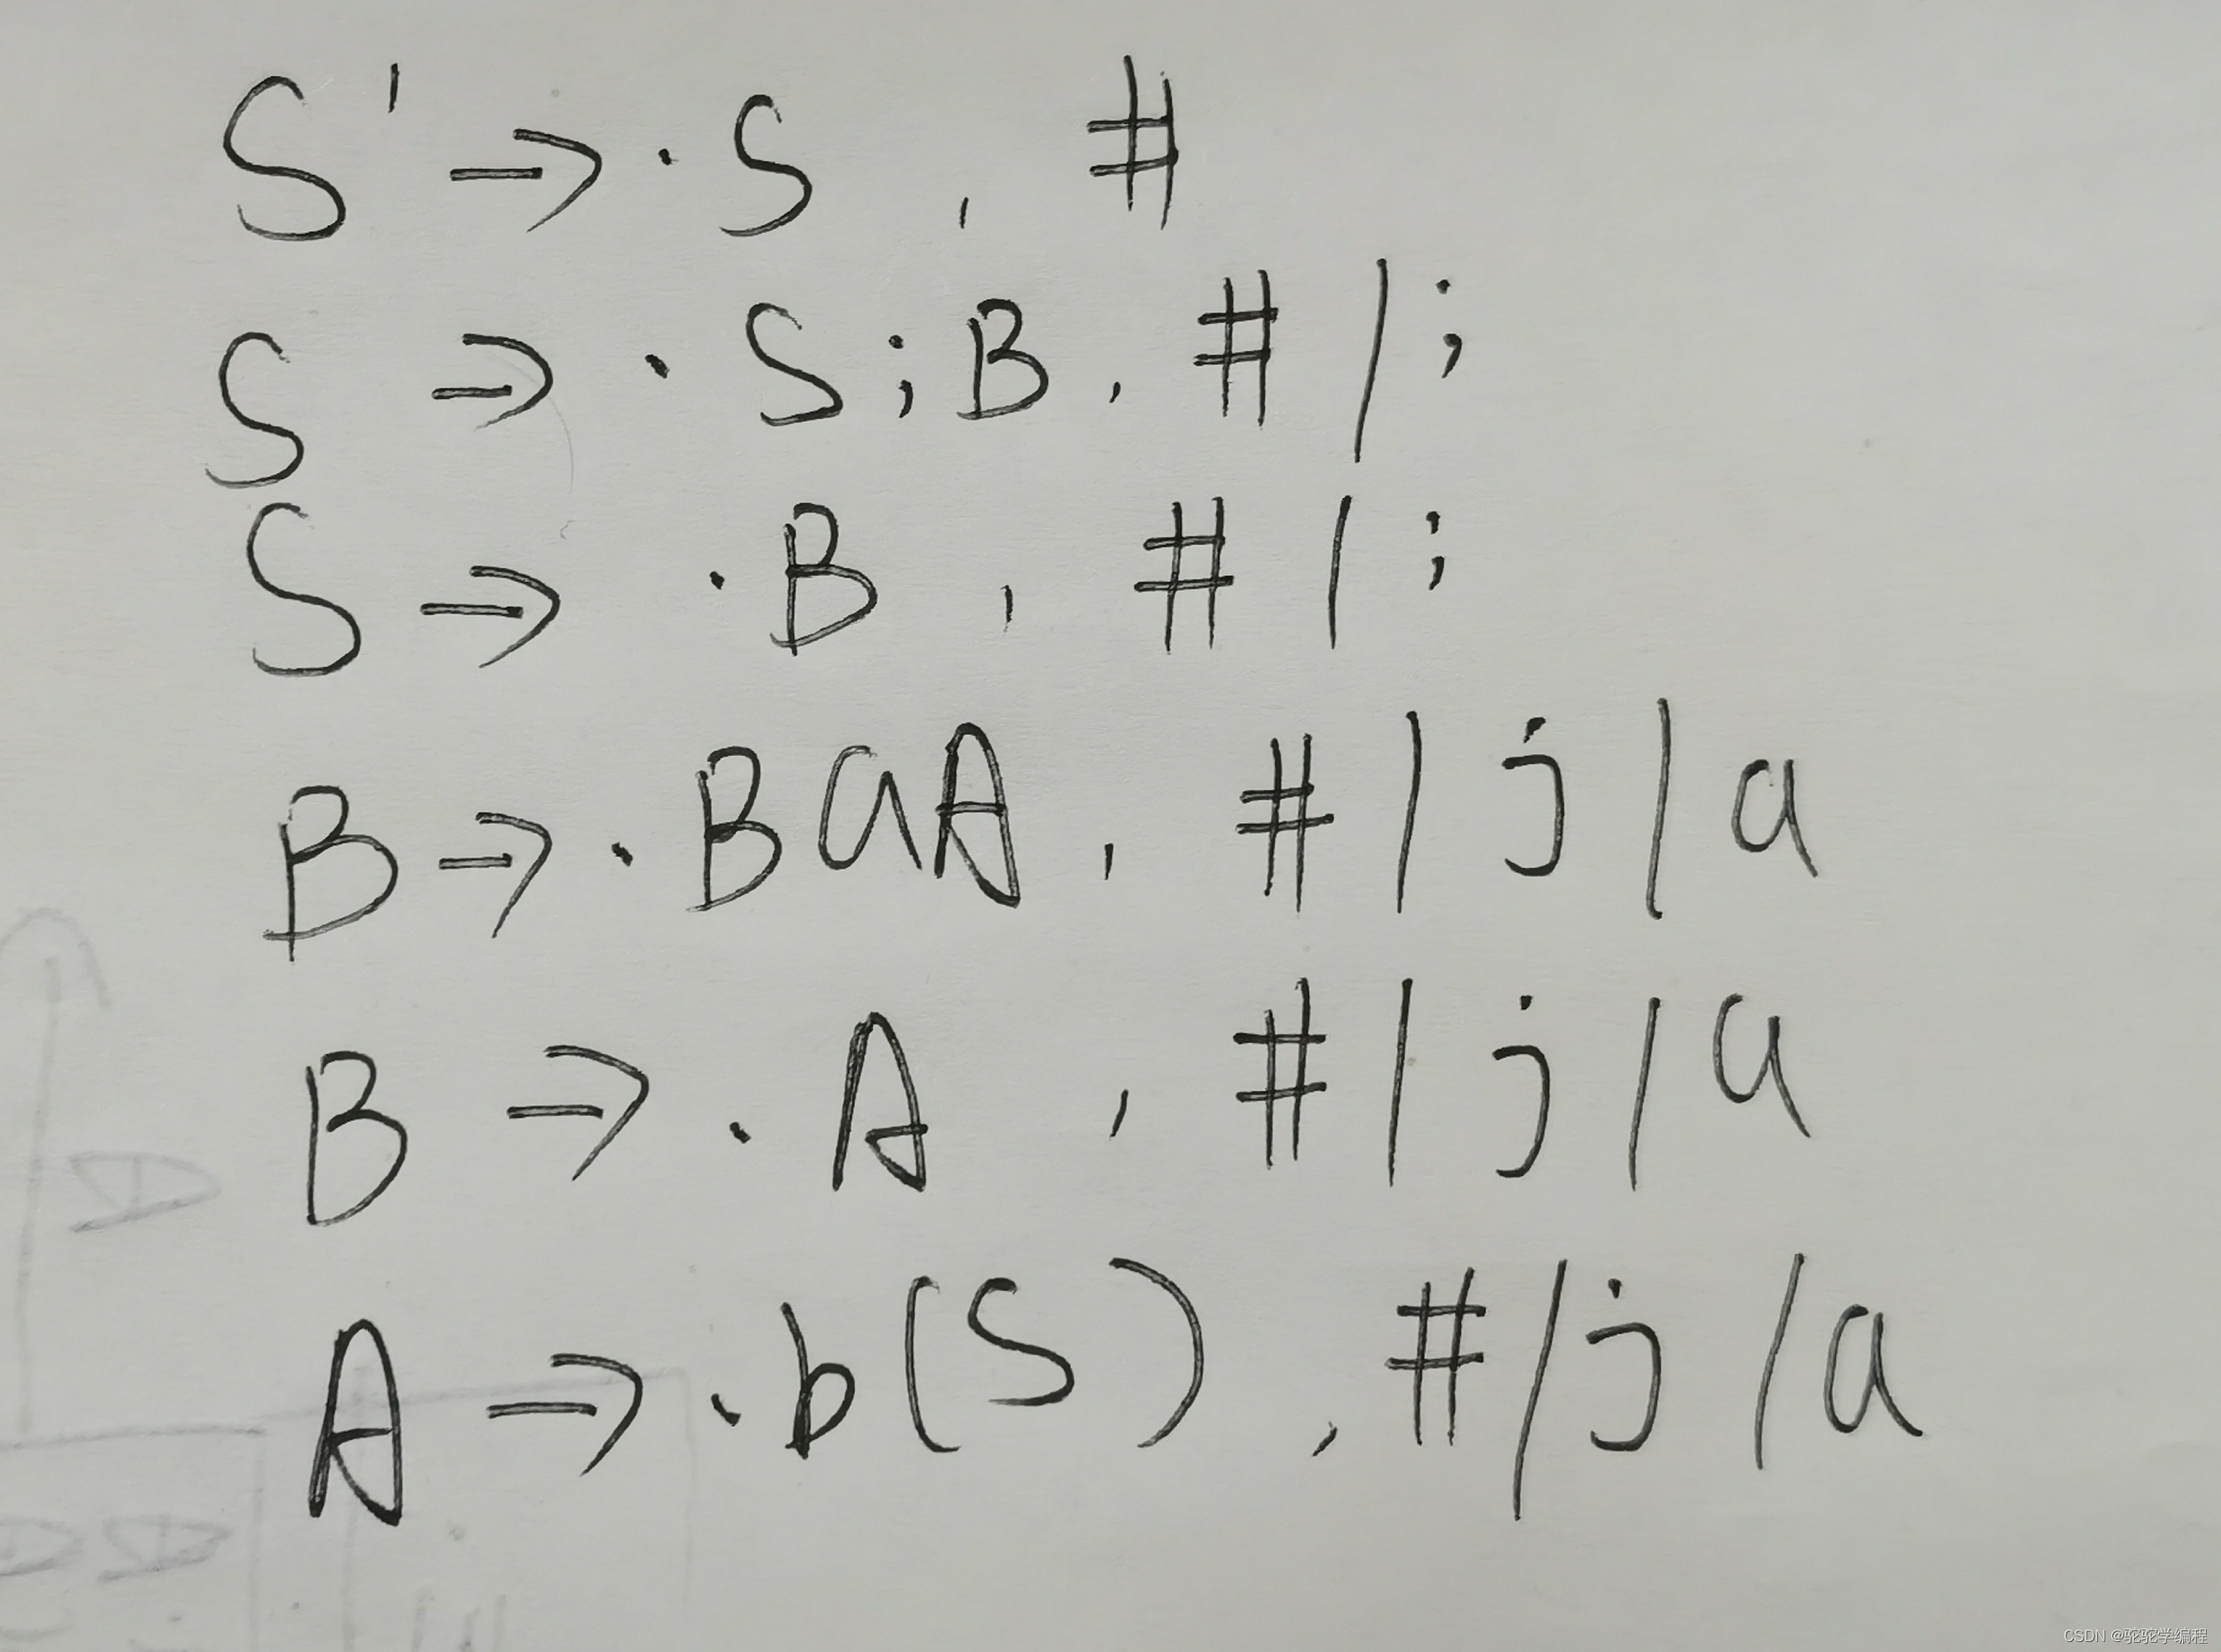 S' → ·S , #
S → ·S;B , # / ;
S → ·B , # / ;
B → ·BaA , # / j / a
B → ·A , # / j / a
A → ·b(S) , # / j / a
CSDN @驼驼学编程